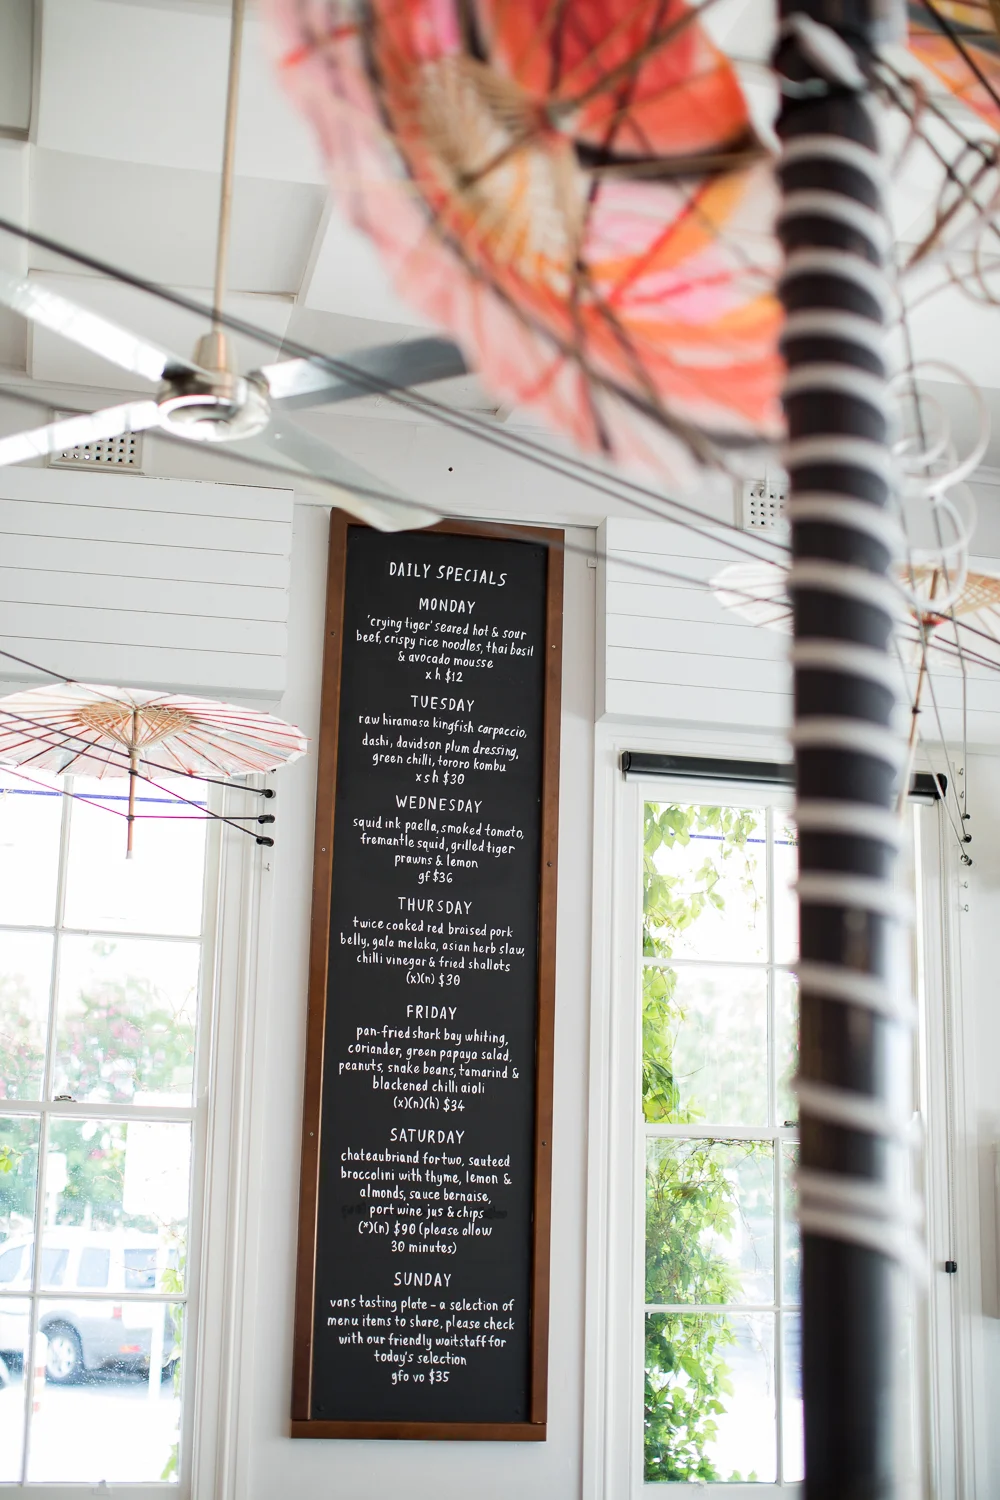 DAILY SPECIALS
MONDAY
'crying tiger' seared hot & sour
beef, crispy rice noodles, thai basil
& avocado mousse
x h $12
TUESDAY
raw hiramasa kingfish carpaccio,
dashi, davidson plum dressing,
green chilli, tororo kombu
x s h $30
WEDNESDAY
squid ink paella, smoked tomato,
fremantle squid, grilled tiger
prawns & lemon
gf $36
THURSDAY
twice cooked red braised pork
belly, gala melaka, asian herb slaw,
chilli vinegar & fried shallots
(x)(n) $30
FRIDAY
pan-fried shark bay whiting,
coriander, green papaya salad,
peanuts, snake beans, tamarind &
blackened chilli aioli
(x)(n)(h) $34
SATURDAY
chateaubriand for two, sauteed
broccolini with thyme, lemon &
almonds, sauce bernaise,
port wine jus & chips
(*)(n) $90 (please allow
30 minutes)
SUNDAY
vans tasting plate - a selection of
menu items to share, please check
with our friendly waitstaff for
today's selection
gfo vo $35